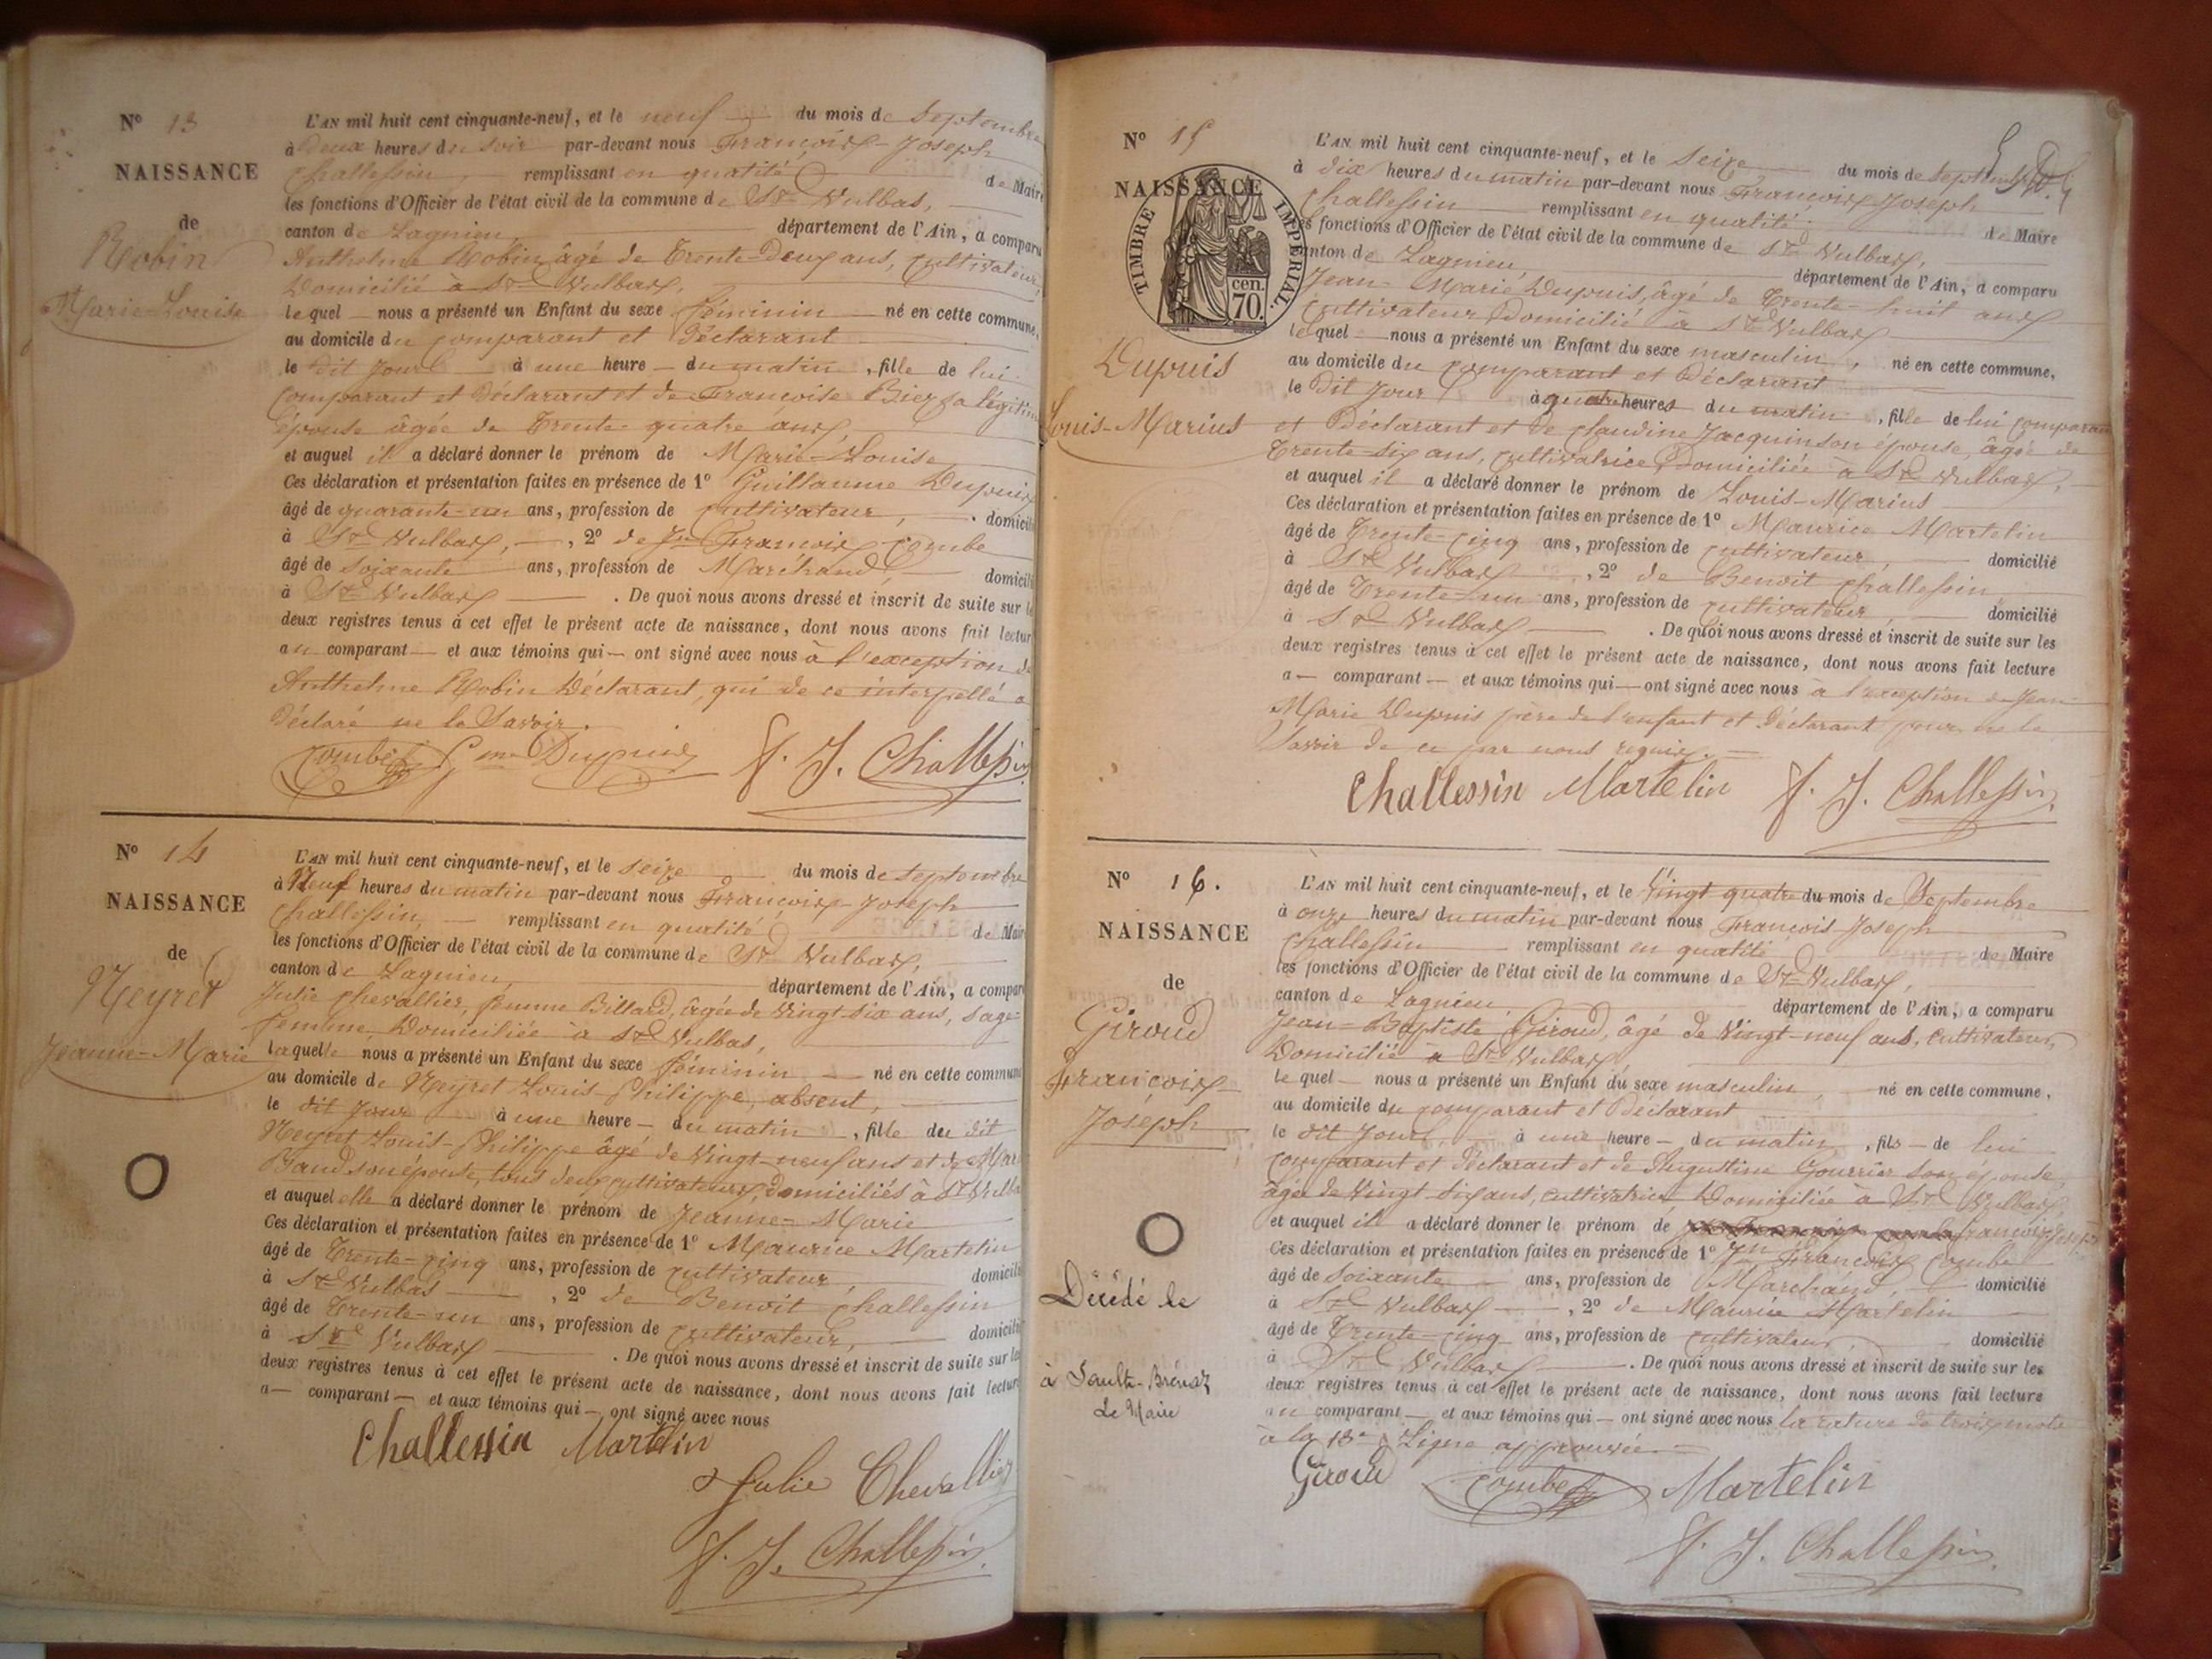 N° 13
NAISSANCE
de
Robin
Marie-Louise
L'AN mil huit cent cinquante-neuf, et le neuf du mois de Septembre
à Deux heures du soir par-devant nous François-Joseph
Challessin, remplissant en qualité de Maire
les fonctions d'Officier de l'état civil de la commune de St Vulbas,
canton de Lagnieu, département de l'Ain, a comparu
Anthelme Robin âgé de Trente-Deux ans, cultivateur,
Domicilié à St Vulbas,
lequel nous a présenté un Enfant du sexe féminin né en cette commune,
au domicile du comparant et Déclarant
le dit Jour à une heure du matin, fille de lui
comparant et Déclarant et de Françoise Biez sa légitime
épouse âgée de Trente-quatre ans,
et auquel il a déclaré donner le prénom de Marie-Louise
Ces déclaration et présentation faites en présence de 1° Guillaume Dupuis
âgé de quarante-un ans, profession de cultivateur, domicilié
à St Vulbas, 2° de Jn François Combe
âgé de soixante ans, profession de Marchand, domicilié
à St Vulbas. De quoi nous avons dressé et inscrit de suite sur les
deux registres tenus à cet effet le présent acte de naissance, dont nous avons fait lecture
au comparant et aux témoins qui ont signé avec nous à l'exception de
Anthelme Robin Déclarant, qui de ce interpellé a
Déclaré ne le Savoir.
Combe Gme Dupuis F. J. Challessin
N° 14
NAISSANCE
de
Neyret
Jeanne-Marie
L'AN mil huit cent cinquante-neuf, et le seize du mois de Septembre
à Neuf heures du matin par-devant nous François-Joseph
Challessin, remplissant en qualité de Maire
les fonctions d'Officier de l'état civil de la commune de St Vulbas,
canton de Lagnieu, département de l'Ain, a comparu
Julie Chevallier, femme Billard, âgée de Vingt-six ans, sage-
femme, Domiciliée à St Vulbas,
laquelle nous a présenté un Enfant du sexe féminin né en cette commune
au domicile de Neyret Louis-Philippe, absent,
le dit Jour à une heure du matin, fille du dit
Neyret Louis-Philippe âgé de Vingt-neuf ans et de
Baud son épouse, tous deux cultivateurs, domiciliés à St Vulbas
et auquel elle a déclaré donner le prénom de Jeanne-Marie
Ces déclaration et présentation faites en présence de 1° Maurice Martelin
âgé de Trente-cinq ans, profession de cultivateur, domicilié
à St Vulbas, 2° de Benoit Challessin
âgé de Trente-un ans, profession de cultivateur, domicilié
à St Vulbas. De quoi nous avons dressé et inscrit de suite sur les
deux registres tenus à cet effet le présent acte de naissance, dont nous avons fait lecture
a comparant et aux témoins qui ont signé avec nous
Challessin Martelin
Julie Chevallier
F. J. Challessin
N° 15
NAISSANCE
TIMBRE IMPÉRIAL.
70 cen.
Dupuis
Louis-Marius
L'AN mil huit cent cinquante-neuf, et le seize du mois de Septembre
à dix heures du matin par-devant nous François-Joseph
Challessin remplissant en qualité de Maire
les fonctions d'Officier de l'état civil de la commune de St Vulbas,
canton de Lagnieu, département de l'Ain, a comparu
Jean-Marie Dupuis, âgé de Trente-huit ans
cultivateur Domicilié à St Vulbas
lequel nous a présenté un Enfant du sexe masculin, né en cette commune,
au domicile du comparant et Déclarant
le dit Jour à quatre heures du matin, fille de lui comparant
et Déclarant et de Claudine Jacquin son épouse, âgée de
Trente-six ans, cultivatrice, Domiciliée à St Vulbas,
et auquel il a déclaré donner le prénom de Louis-Marius
Ces déclaration et présentation faites en présence de 1° Maurice Martelin
âgé de Trente-cinq ans, profession de cultivateur, domicilié
à St Vulbas, 2° de Benoit Challessin
âgé de Trente-un ans, profession de cultivateur, domicilié
à St Vulbas. De quoi nous avons dressé et inscrit de suite sur les
deux registres tenus à cet effet le présent acte de naissance, dont nous avons fait lecture
a comparant et aux témoins qui ont signé avec nous à l'exception de Jean-
Marie Dupuis père de l'enfant et Déclarant pour ne le
Savoir de ce par nous requis.
Challessin Martelin F. J. Challessin
N° 16.
NAISSANCE
de
Giroud
François
Joseph
Décédé le
à Sault-Brénaz
Le Maire
L'AN mil huit cent cinquante-neuf, et le Vingt quatre du mois de Septembre
à onze heures du matin par-devant nous François-Joseph
Challessin remplissant en qualité de Maire
les fonctions d'Officier de l'état civil de la commune de St Vulbas,
canton de Lagnieu, département de l'Ain, a comparu
Jean-Baptiste Giroud, âgé de Vingt-neuf ans, cultivateur,
Domicilié à St Vulbas,
lequel nous a présenté un Enfant du sexe masculin, né en cette commune,
au domicile du comparant et Déclarant
le dit Jour, à une heure du matin, fils de lui
comparant et Déclarant et de Augustine Gourrier son épouse,
âgée de Vingt-six ans, cultivatrice, Domiciliée à St Vulbas,
et auquel il a déclaré donner le prénom de François Joseph
Ces déclaration et présentation faites en présence de 1° Jn François Combe
âgé de soixante ans, profession de Marchand, domicilié
à St Vulbas, 2° de Maurice Martelin
âgé de Trente-cinq ans, profession de cultivateur, domicilié
à St Vulbas. De quoi nous avons dressé et inscrit de suite sur les
deux registres tenus à cet effet le présent acte de naissance, dont nous avons fait lecture
au comparant et aux témoins qui ont signé avec nous la rature de trois mots
à la 13e Ligne approuvée.
Giroud Combe Martelin
F. J. Challessin